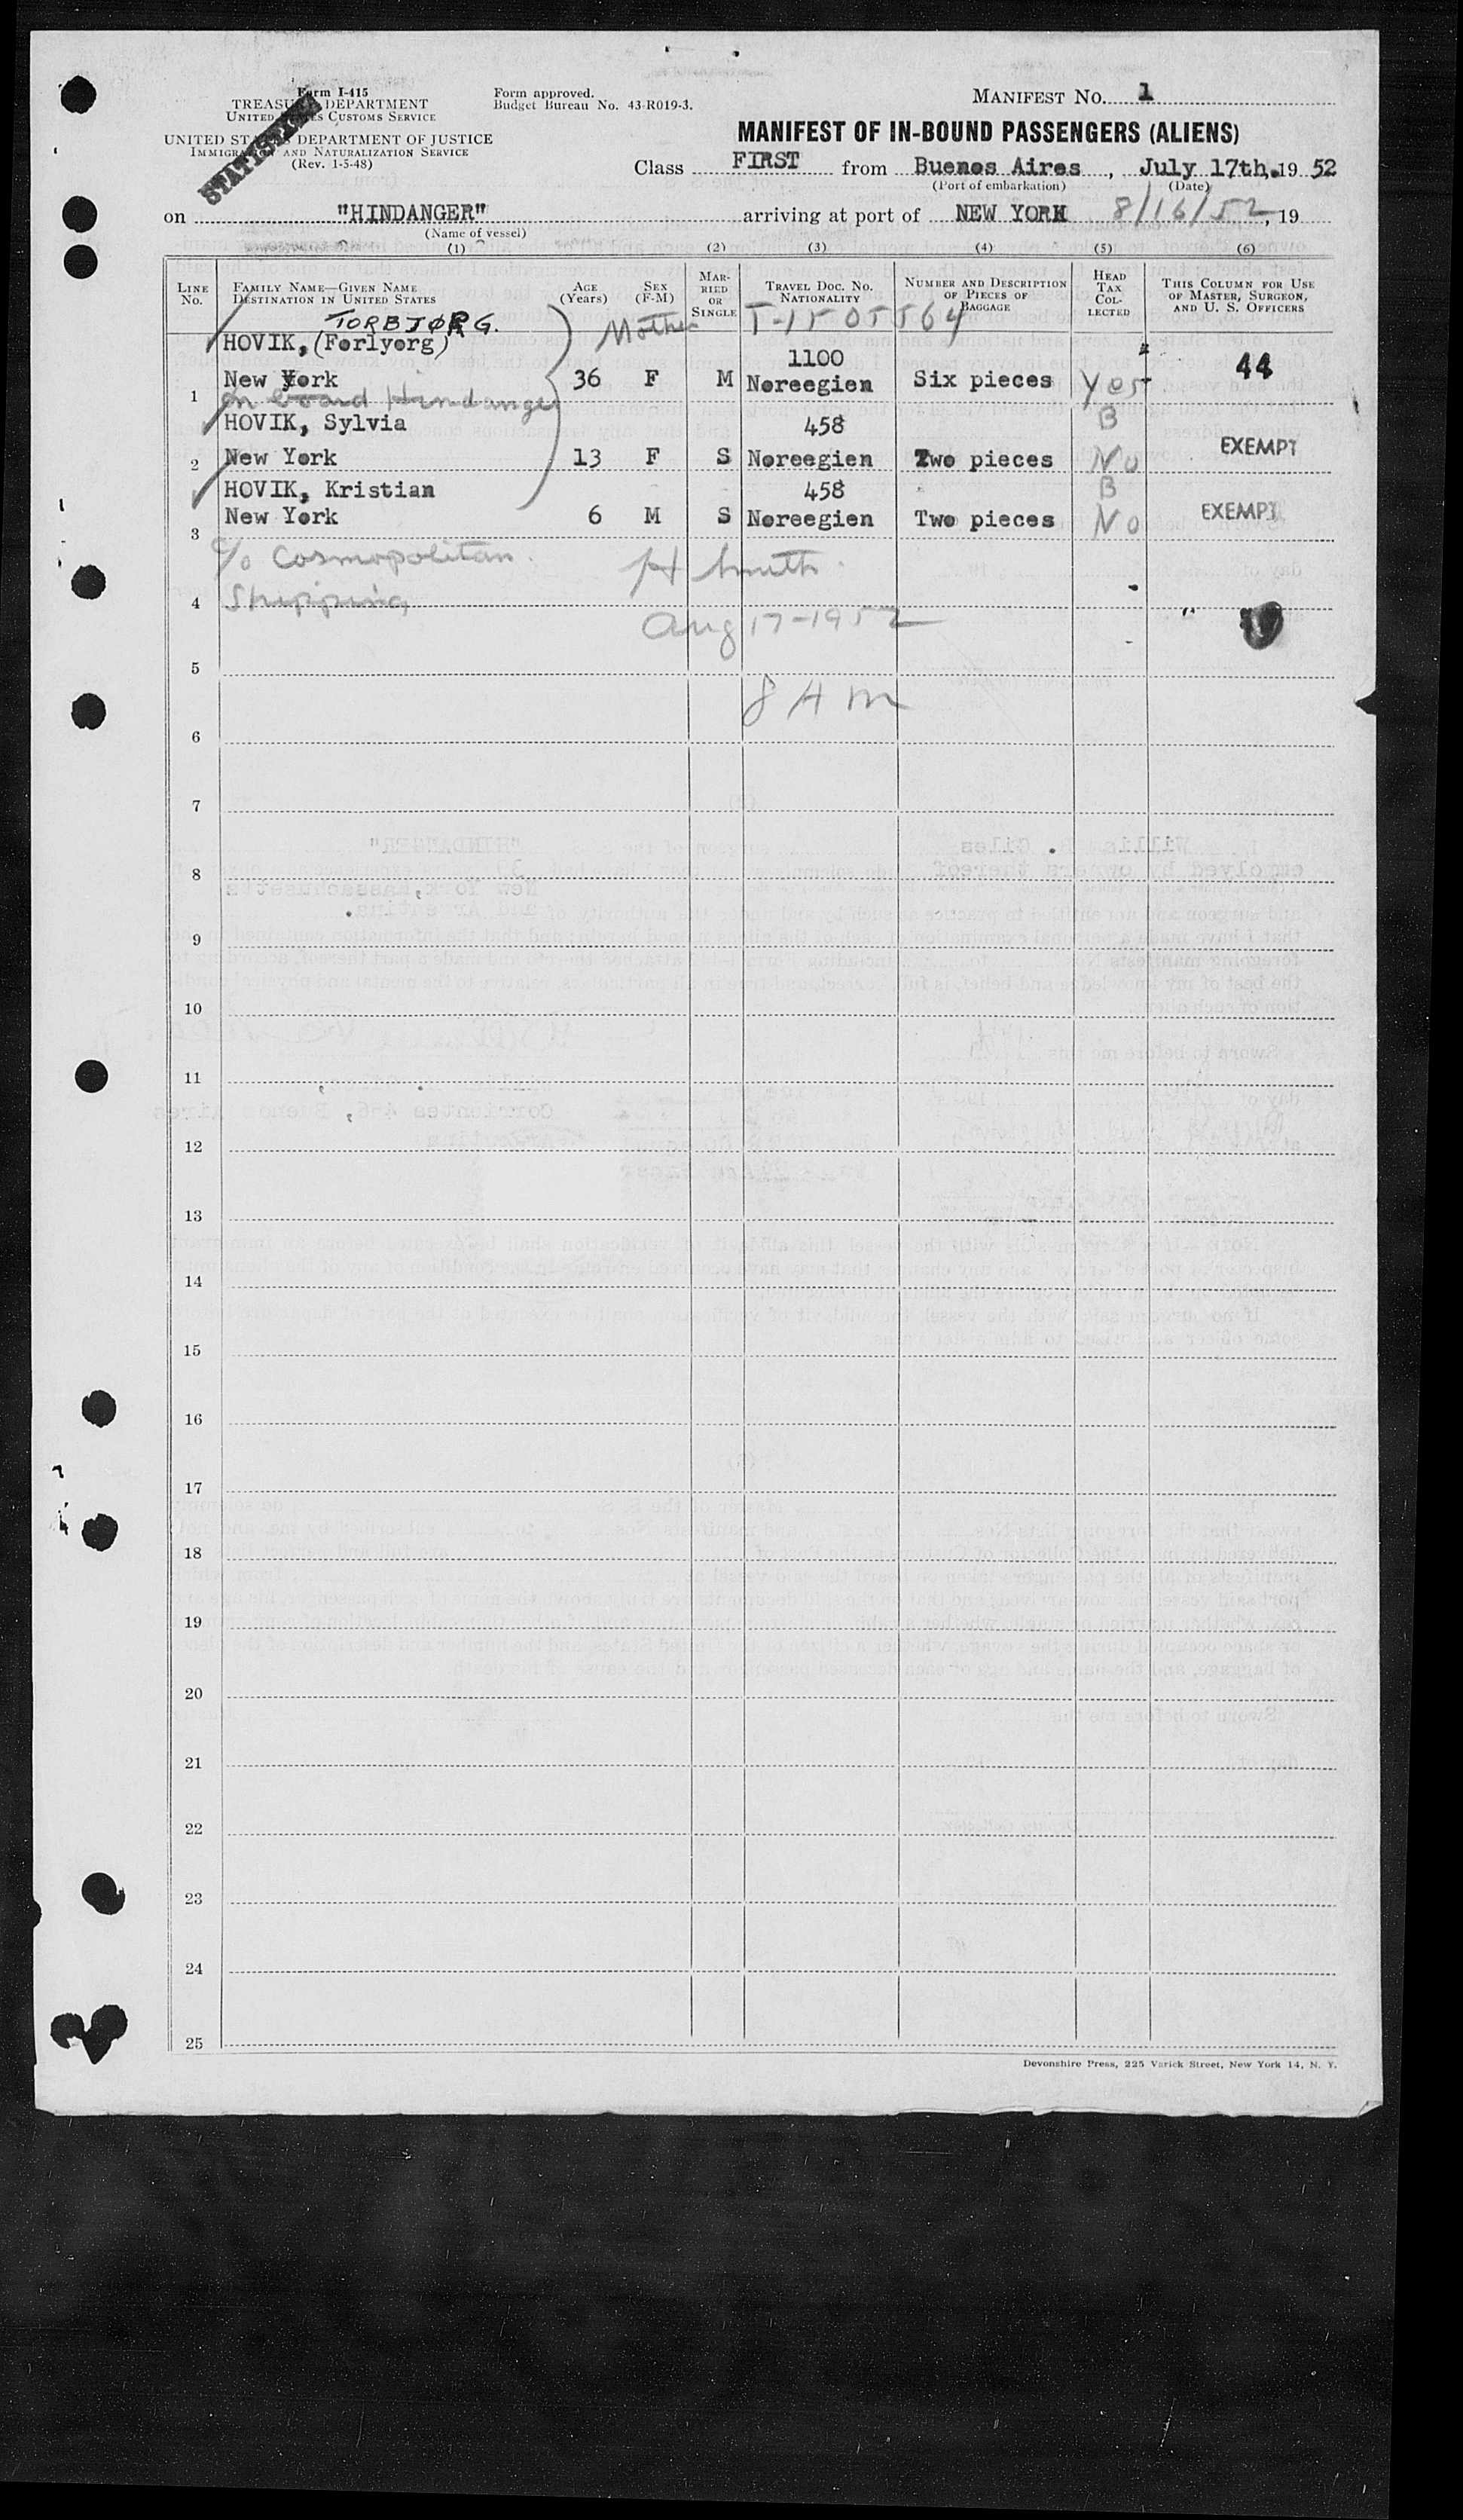 Form I-415
TREASURY DEPARTMENT
UNITED STATES CUSTOMS SERVICE
UNITED STATES DEPARTMENT OF JUSTICE
IMMIGRATION AND NATURALIZATION SERVICE
(Rev. 1-5-48)
STATISTICS
Form approved.
Budget Bureau No. 43-R019-3.
MANIFEST No. 1
MANIFEST OF IN-BOUND PASSENGERS (ALIENS)
Class FIRST from Buenos Aires, July 17th. 19 52
(Port of embarkation) (Date)
on "HINDANGER" arriving at port of NEW YORK 8/16/52, 19
(Name of vessel)
(1) (2) (3) (4) (5) (6)
LINE No. FAMILY NAME—GIVEN NAME DESTINATION IN UNITED STATES AGE (Years) SEX (F-M) MARRIED OR SINGLE TRAVEL DOC. NO. NATIONALITY NUMBER AND DESCRIPTION OF PIECES OF BAGGAGE HEAD TAX COLLECTED THIS COLUMN FOR USE OF MASTER, SURGEON, AND U. S. OFFICERS
TORBJØRG. Mother T-1505564
HOVIK, (Forlyorg) 1100 44
1 New York 36 F M Noreegien Six pieces Yes
on board Hindanger
HOVIK, Sylvia 458 B EXEMPT
2 New York 13 F S Noreegien Two pieces No
HOVIK, Kristian 458 B EXEMPT
3 New York 6 M S Noreegien Two pieces No
c/o Cosmopolitan
4 Shipping
Aug 17-1952
5
8 A m
6
7
8
9
10
11
12
13
14
15
16
17
18
19
20
21
22
23
24
25
Devonshire Press, 225 Varick Street, New York 14, N. Y.